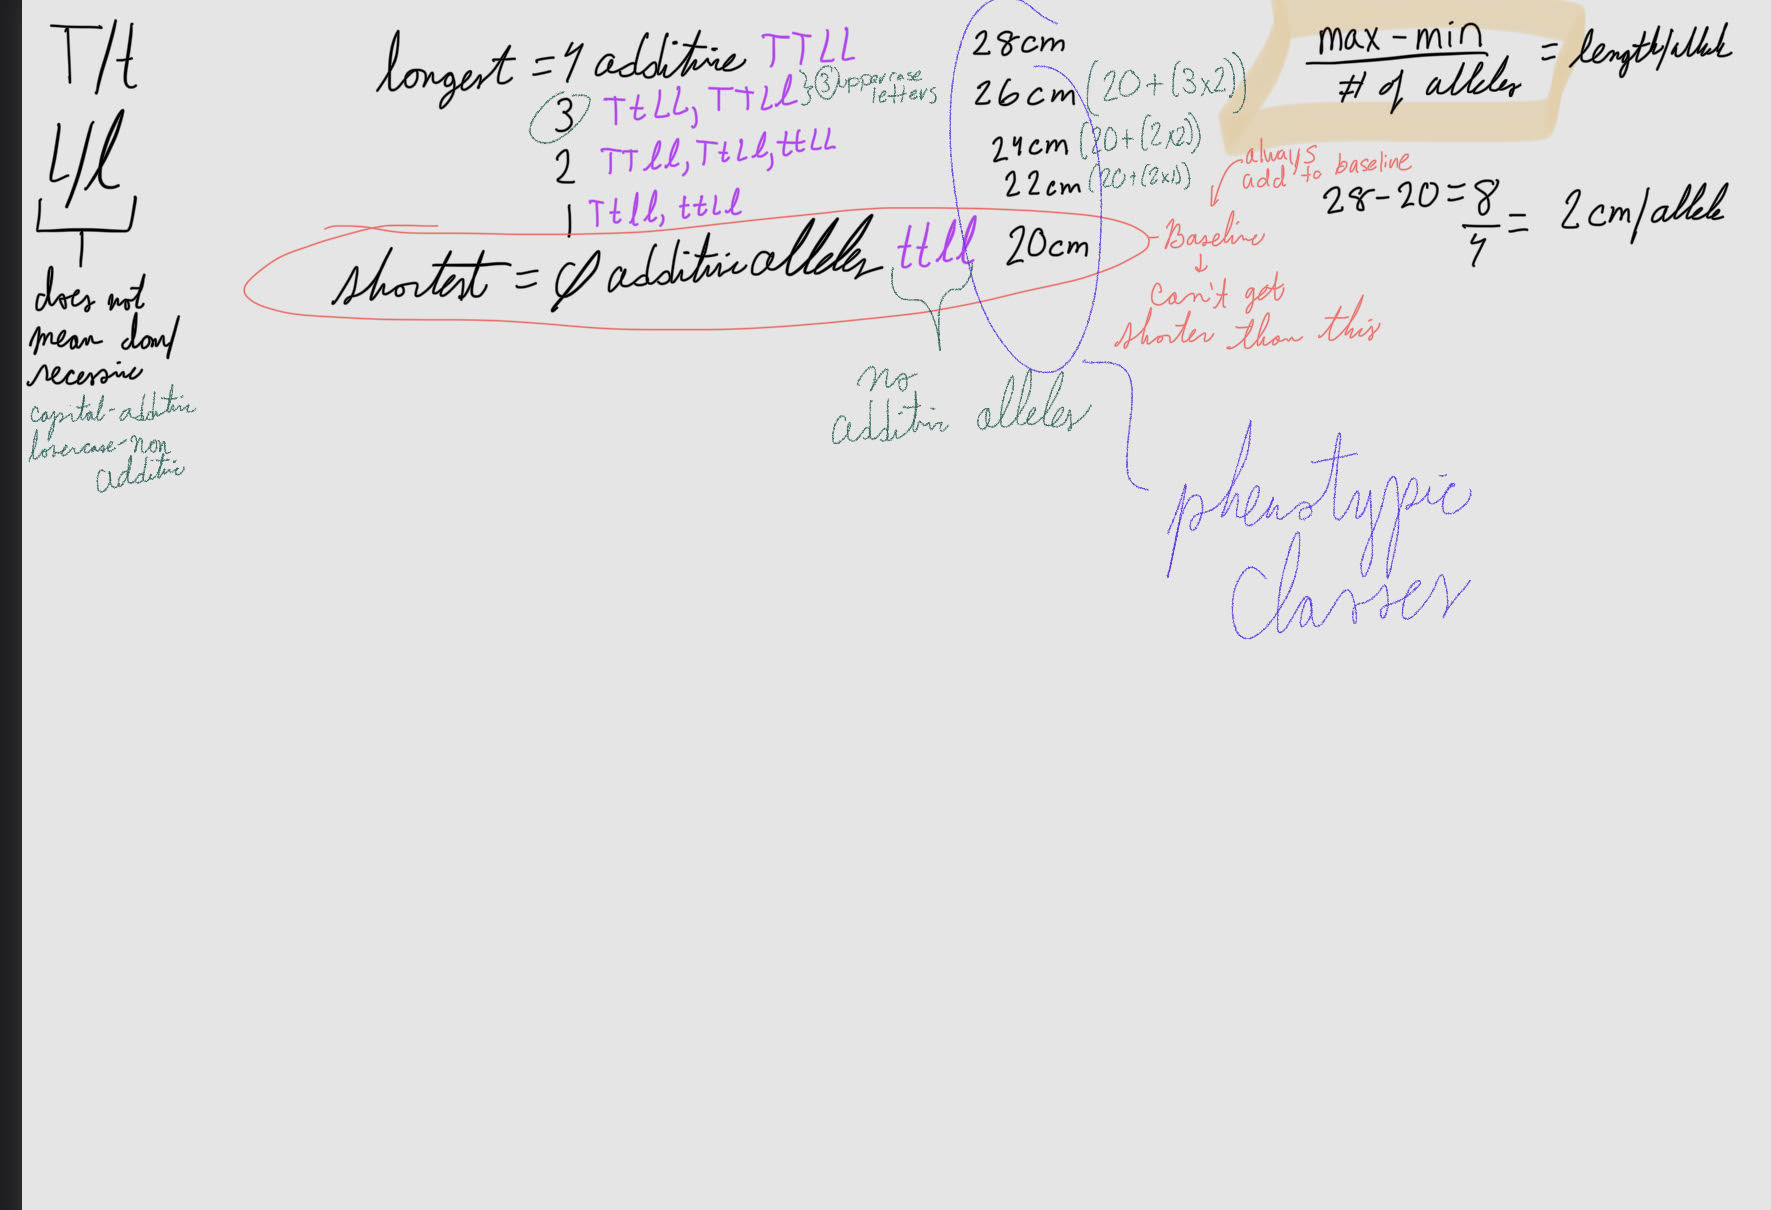 T/t
L/l
does not
mean dom/
recessive
capital-additive
lowercase-non
additive
longest = 4 additive TTLL 28cm
3 TtLL, TTLl } ③ uppercase
letters
26cm (20+(3x2))
2 TTll, TtLl, ttLL 24cm (20+(2x2))
1 Ttll, ttLl 22cm (20+(2x1))
shortest = φ additive alleles ttll 20cm
no
additive alleles
always
add to baseline
Baseline
can't get
shorter than this
max - min
# of alleles
= length/allele
28-20=8
4
= 2cm/allele
phenotypic
classes